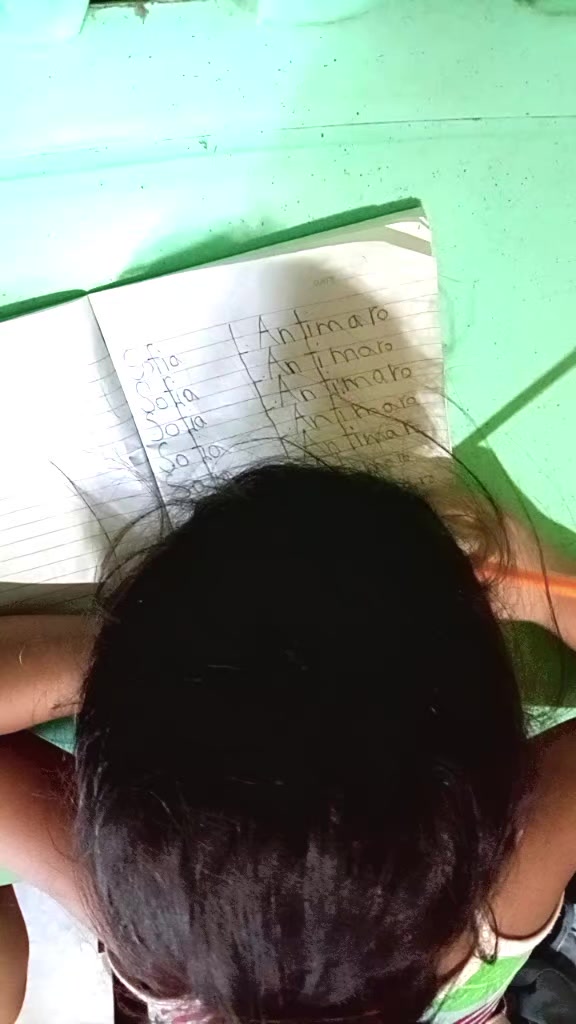 Sofia F. Antimaro
Sofia F. Antimaro
Sofia F. Antimaro
Sofia F. Antimaro
Sofia Antimaro